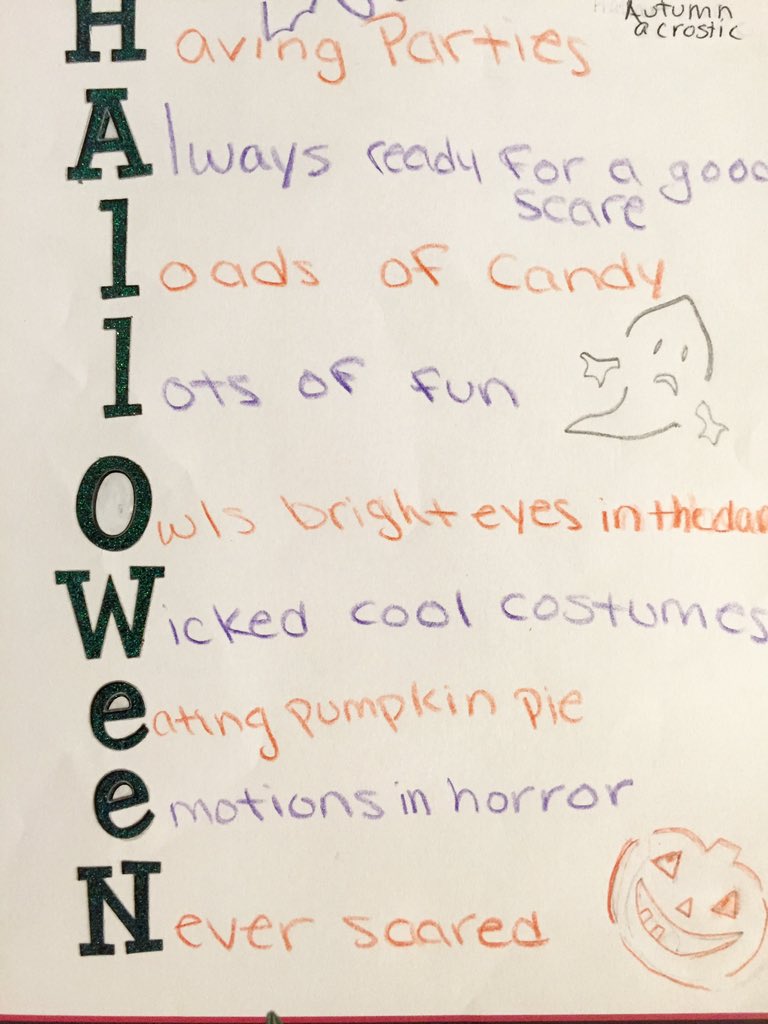 Autumn
acrostic
Having Parties
Always ready for a good
scare
loads of Candy
lots of fun
Owls bright eyes in the dar
Wicked cool costumes
eating pumpkin pie
emotions in horror
Never scared